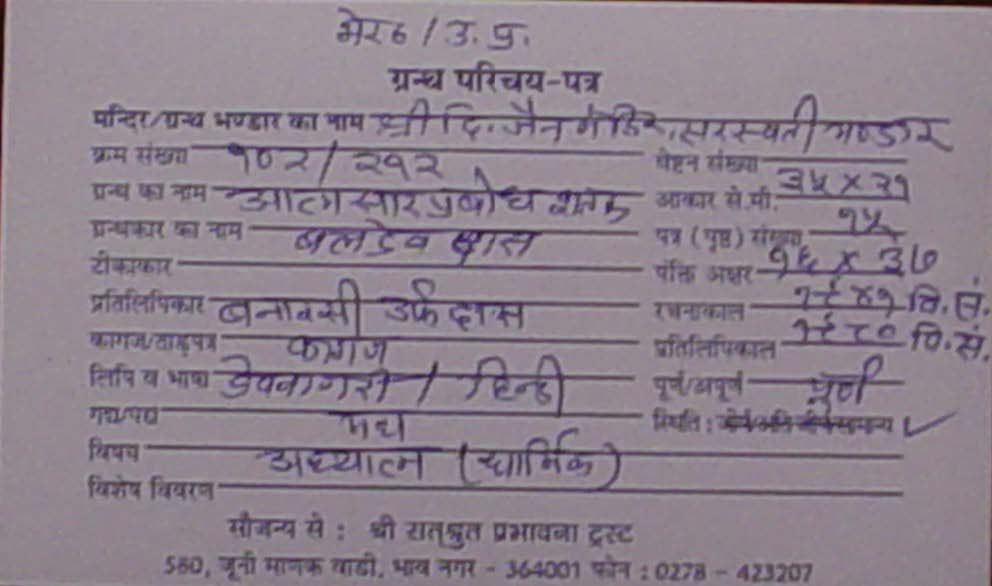 मेरठ / उ. प्र.
ग्रन्थ परिचय-पत्र
मन्दिर/ग्रन्थ भण्डार का नाम श्री दि. जैन मंदिर, सरस्वती भण्डार
क्रम संख्या १०२/२१२ वेष्टन संख्या
ग्रन्थ का नाम आत्मसार प्रबोध शतक आकार से.मी. ३५ X २१
ग्रन्थकार का नाम बलदेव दास पत्र (पृष्ठ) संख्या १५
टीकाकार पंक्ति अक्षर १६ X ३७
प्रतिलिपिकार बनारसी उर्फ दास रचनाकाल १८४१ वि. सं.
कागज/ताड़पत्र कागज प्रतिलिपिकाल १९८० वि. सं.
लिपि व भाषा देवनागरी / हिन्दी पूर्ण/अपूर्ण पूर्ण
गद्य/पद्य स्थिति : सामान्य ✓
विषय अध्यात्म (धार्मिक)
विशेष विवरण
सौजन्य से : श्री सत्श्रुत प्रभावना ट्रस्ट
580, जूनी माणक वाडी, भाव नगर - 364001 फोन : 0278 - 423207